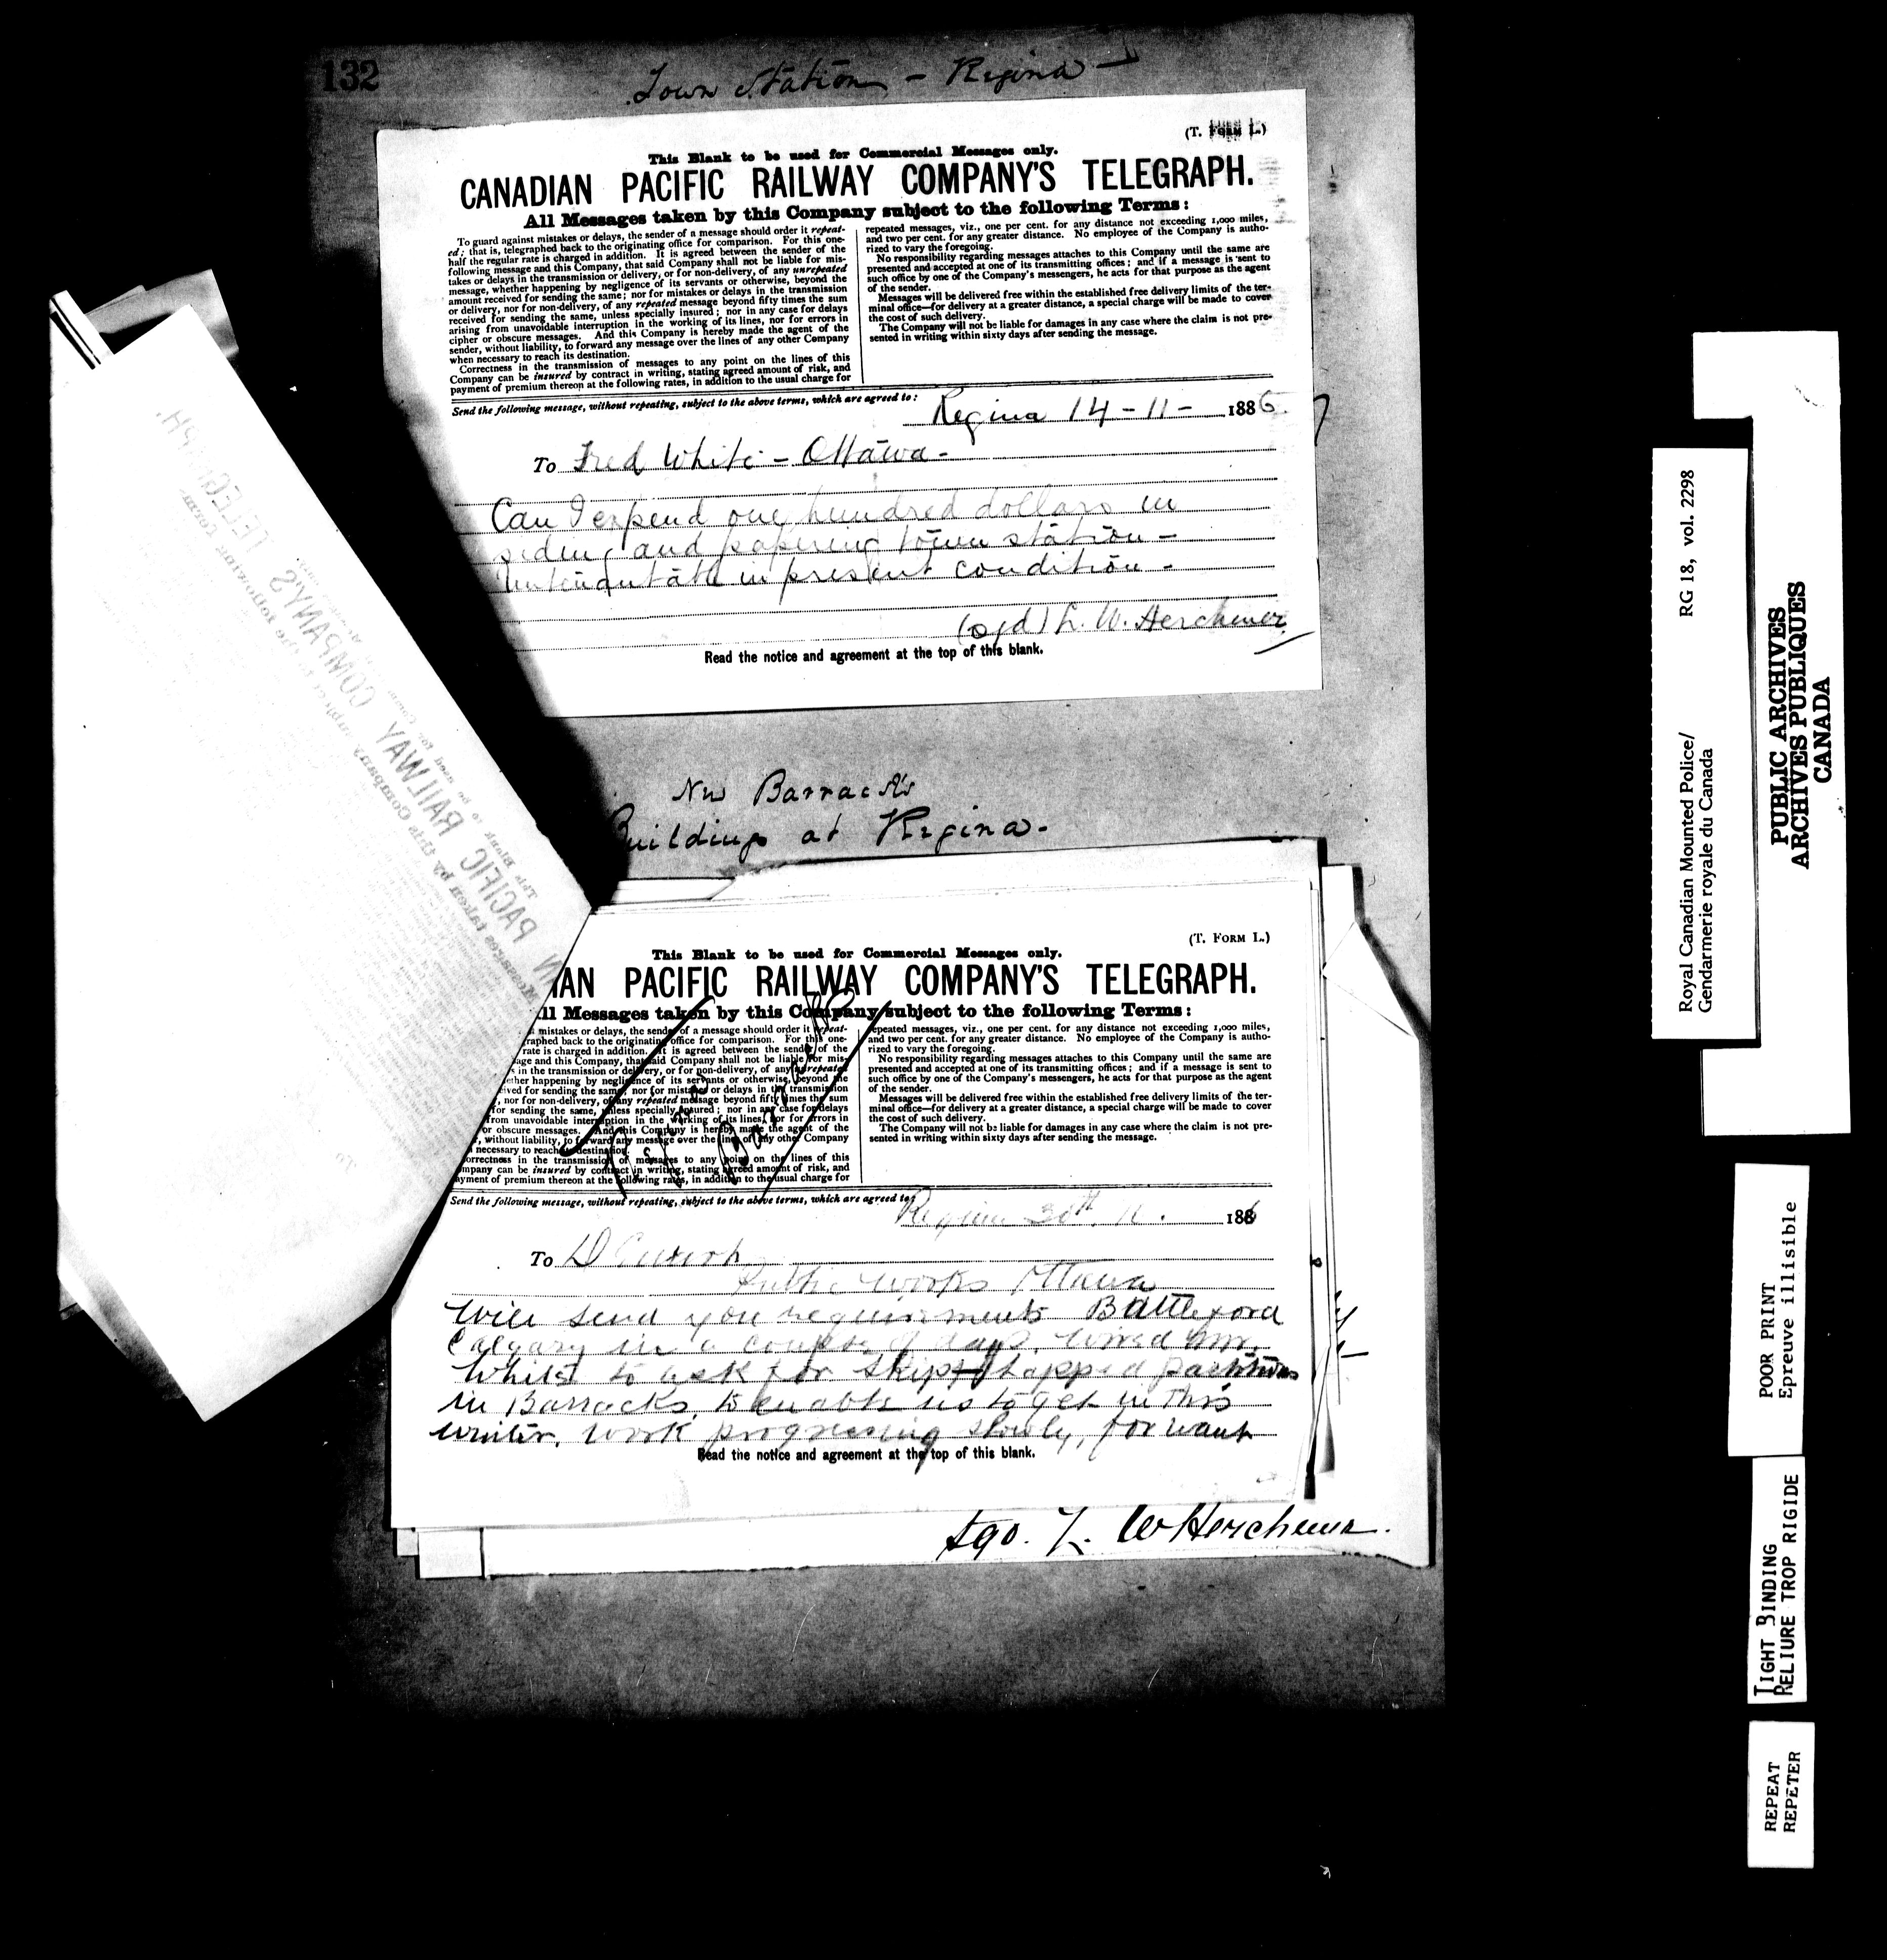 132
Town Station - Regina
(T. FORM L.)
This Blank to be used for Commercial Messages only.
CANADIAN PACIFIC RAILWAY COMPANY'S TELEGRAPH.
All Messages taken by this Company subject to the following Terms:
To guard against mistakes or delays, the sender of a message should order it repeat-
ed; that is, telegraphed back to the originating office for comparison. For this one-
half the regular rate is charged in addition. It is agreed between the sender of the
following message and this Company, that said Company shall not be liable for mis-
takes or delays in the transmission or delivery, or for non-delivery, of any unrepeated
message, whether happening by negligence of its servants or otherwise, beyond the
amount received for sending the same; nor for mistakes or delays in the transmission
or delivery, nor for non-delivery, of any repeated message beyond fifty times the sum
received for sending the same, unless specially insured; nor in any case for delays
arising from unavoidable interruption in the working of its lines, nor for errors in
cipher or obscure messages. And this Company is hereby made the agent of the
sender, without liability, to forward any message over the lines of any other Company
when necessary to reach its destination.
Correctness in the transmission of messages to any point on the lines of this
Company can be insured by contract in writing, stating agreed amount of risk, and
payment of premium thereon at the following rates, in addition to the usual charge for
repeated messages, viz., one per cent. for any distance not exceeding 1,000 miles,
and two per cent. for any greater distance. No employee of the Company is autho-
rized to vary the foregoing.
No responsibility regarding messages attaches to this Company until the same are
presented and accepted at one of its transmitting offices; and if a message is sent to
such office by one of the Company's messengers, he acts for that purpose as the agent
of the sender.
Messages will be delivered free within the established free delivery limits of the ter-
minal office—for delivery at a greater distance, a special charge will be made to cover
the cost of such delivery.
The Company will not be liable for damages in any case where the claim is not pre-
sented in writing within sixty days after sending the message.
Send the following message, without repeating, subject to the above terms, which are agreed to:
Regina 14-11- 1886.
To Fred White - Ottawa -
Can I expend one hundred dollars in
siding and papering town station -
untenantable in present condition -
(sgd) L. W. Herchmer
Read the notice and agreement at the top of this blank.
New Barracks
Buildings at Regina.
(T. FORM L.)
This Blank to be used for Commercial Messages only.
IAN PACIFIC RAILWAY COMPANY'S TELEGRAPH.
ll Messages taken by this Company subject to the following Terms:
mistakes or delays, the sender of a message should order it repeat-
raphed back to the originating office for comparison. For this one-
rate is charged in addition. It is agreed between the sender of the
age and this Company, that said Company shall not be liable for mis-
in the transmission or delivery, or for non-delivery, of any unrepeated
ether happening by negligence of its servants or otherwise, beyond the
ived for sending the same; nor for mistakes or delays in the transmission
, nor for non-delivery, of any repeated message beyond fifty times the sum
for sending the same, unless specially insured; nor in any case for delays
from unavoidable interruption in the working of its lines, nor for errors in
or obscure messages. And this Company is hereby made the agent of the
, without liability, to forward any message over the lines of any other Company
necessary to reach its destination.
orrectness in the transmission of messages to any point on the lines of this
mpany can be insured by contract in writing, stating agreed amount of risk, and
ayment of premium thereon at the following rates, in addition to the usual charge for
repeated messages, viz., one per cent. for any distance not exceeding 1,000 miles,
and two per cent. for any greater distance. No employee of the Company is autho-
rized to vary the foregoing.
No responsibility regarding messages attaches to this Company until the same are
presented and accepted at one of its transmitting offices; and if a message is sent to
such office by one of the Company's messengers, he acts for that purpose as the agent
of the sender.
Messages will be delivered free within the established free delivery limits of the ter-
minal office—for delivery at a greater distance, a special charge will be made to cover
the cost of such delivery.
The Company will not be liable for damages in any case where the claim is not pre-
sented in writing within sixty days after sending the message.
Regina Barracks
Send the following message, without repeating, subject to the above terms, which are agreed to:
Regina 30th 1886
To D Ewart
Public Works Ottawa
Will send you requirements Battleford
Calgary in a couple of days. Wired
White to ask for partitions
in Barracks to enable us to get in this
winter. Work progressing slowly, for want
Read the notice and agreement at the top of this blank.
Sgd. L. W Herchmer.
RG 18, vol. 2298
Royal Canadian Mounted Police/
Gendarmerie royale du Canada
PUBLIC ARCHIVES
ARCHIVES PUBLIQUES
CANADA
POOR PRINT
Epreuve illisible
TIGHT BINDING
RELIURE TROP RIGIDE
REPEAT
REPETER